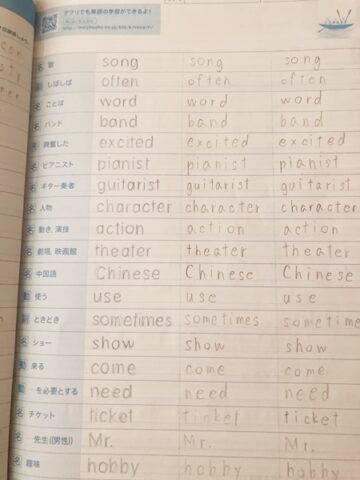 アプリでも単語の学習ができるよ!
名 歌 song song song
副 しばしば often often often
名 ことば word word word
名 バンド band band band
形 興奮した excited excited excited
名 ピアニスト pianist pianist pianist
名 ギター奏者 guitarist guitarist guitarist
名 人物 character character character
名 動き, 演技 action action action
名 劇場, 映画館 theater theater theater
名 中国語 Chinese Chinese Chinese
動 使う use use use
副 ときどき sometimes sometimes sometime
名 ショー show show show
動 来る come come come
動 を必要とする need need need
名 チケット ticket ticket ticket
名 先生((男性)) Mr. Mr. Mr.
名 趣味 hobby hobby hobby